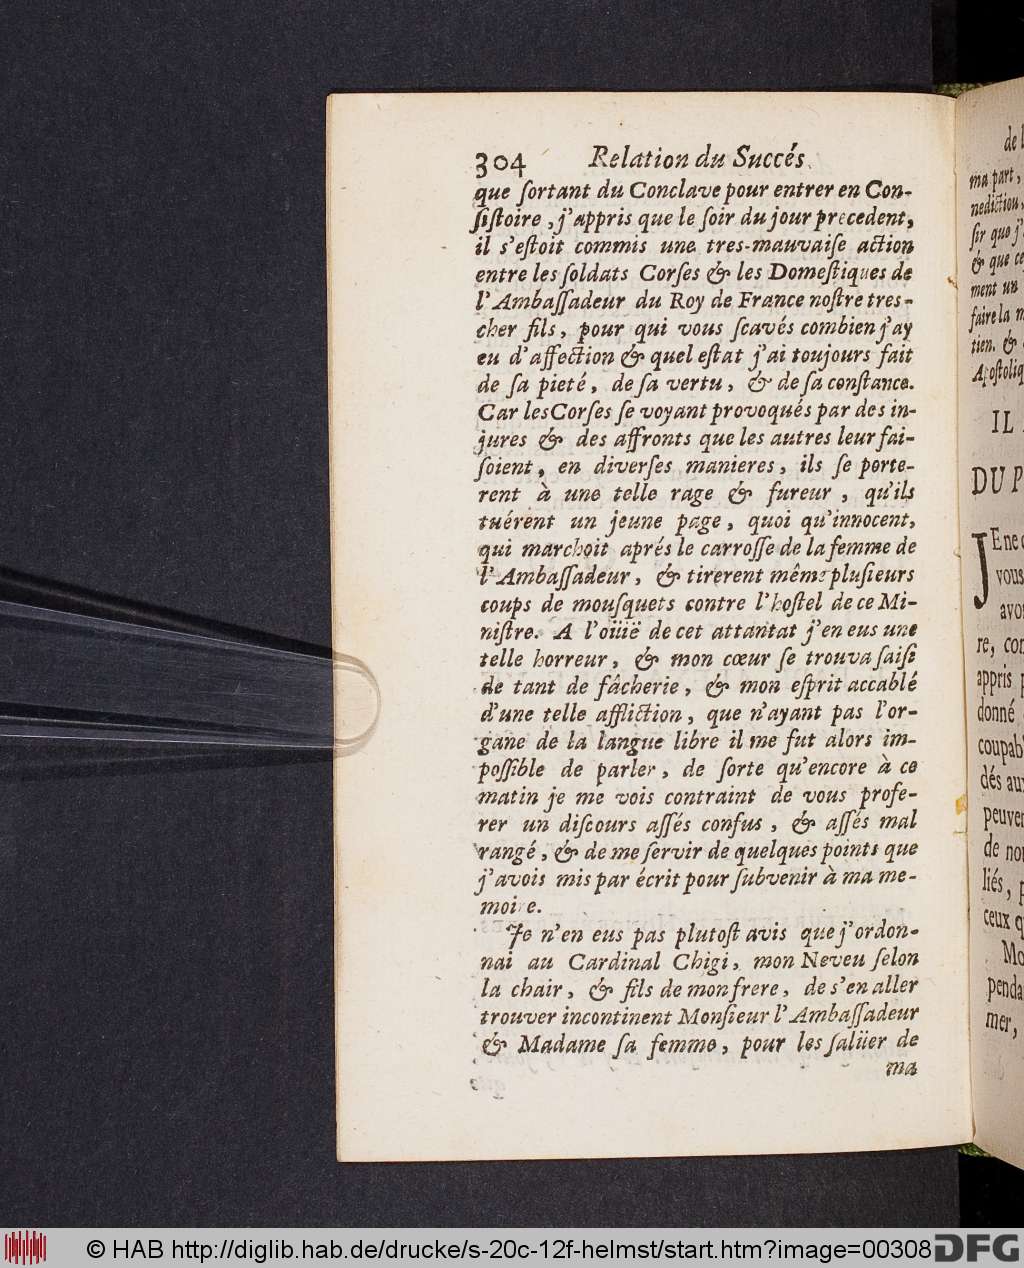 304 Relation du Succés
que ſortant du Conclave pour entrer en Con-
ſiſtoire, j'appris que le ſoir du jour precedent,
il s'eſtoit commis une tres-mauvaiſe action
entre les ſoldats Corſes & les Domeſtiques de
l'Ambaſſadeur du Roy de France noſtre tres-
cher fils, pour qui vous ſcavés combien j'ay
eu d'affection & quel eſtat j'ai toujours fait
de ſa pieté, de ſa vertu, & de ſa conſtance.
Car les Corſes ſe voyant provoqués par des in-
jures & des affronts que les autres leur fai-
ſoient, en diverſes manieres, ils ſe porte-
rent à une telle rage & fureur, qu'ils
tuérent un jeune page, quoi qu'innocent,
qui marchoit aprés le carroſſe de la femme de
l'Ambaſſadeur, & tirerent même pluſieurs
coups de mouſquets contre l'hoſtel de ce Mi-
niſtre. A l'oüië de cet attantat j'en eus une
telle horreur, & mon cœur ſe trouva ſaiſi
de tant de fâcherie, & mon eſprit accablé
d'une telle affliction, que n'ayant pas l'or-
gane de la langue libre il me fut alors im-
poſſible de parler, de ſorte qu'encore à ce
matin je me vois contraint de vous profe-
rer un diſcours aſſés confus, & aſſés mal
rangé, & de me ſervir de quelques points que
j'avois mis par écrit pour ſubvenir à ma me-
moire.
Je n'en eus pas plutoſt avis que j'ordon-
nai au Cardinal Chigi, mon Neveu ſelon
la chair, & fils de mon frere, de s'en aller
trouver incontinent Monſieur l'Ambaſſadeur
& Madame ſa femme, pour les ſalüer de
ma
de
ma part,
nediction,
ſir que j'
& que ce
ment un
faire la
tien. &
Apoſtoliq
IL
DU P
JE ne
vous
avo
re, con
appris
donné
coupab
dés aux
peuven
de nou
liés,
ceux q
Mo
penda
mer,
© HAB http://diglib.hab.de/drucke/s-20c-12f-helmst/start.htm?image=00308
DFG